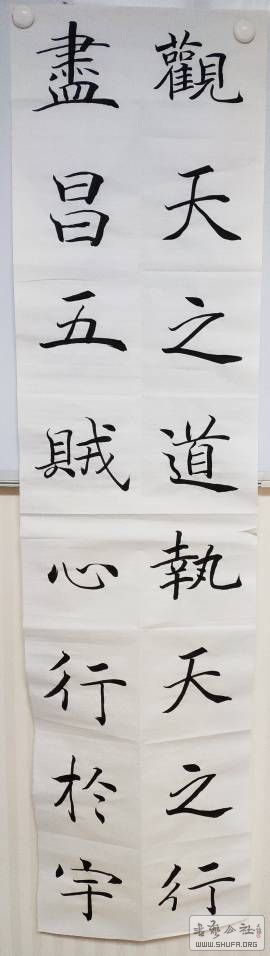 觀天之道執天之行
盡昌五賊心行於宇
書藝公社
WWW.SHUFA.ORG